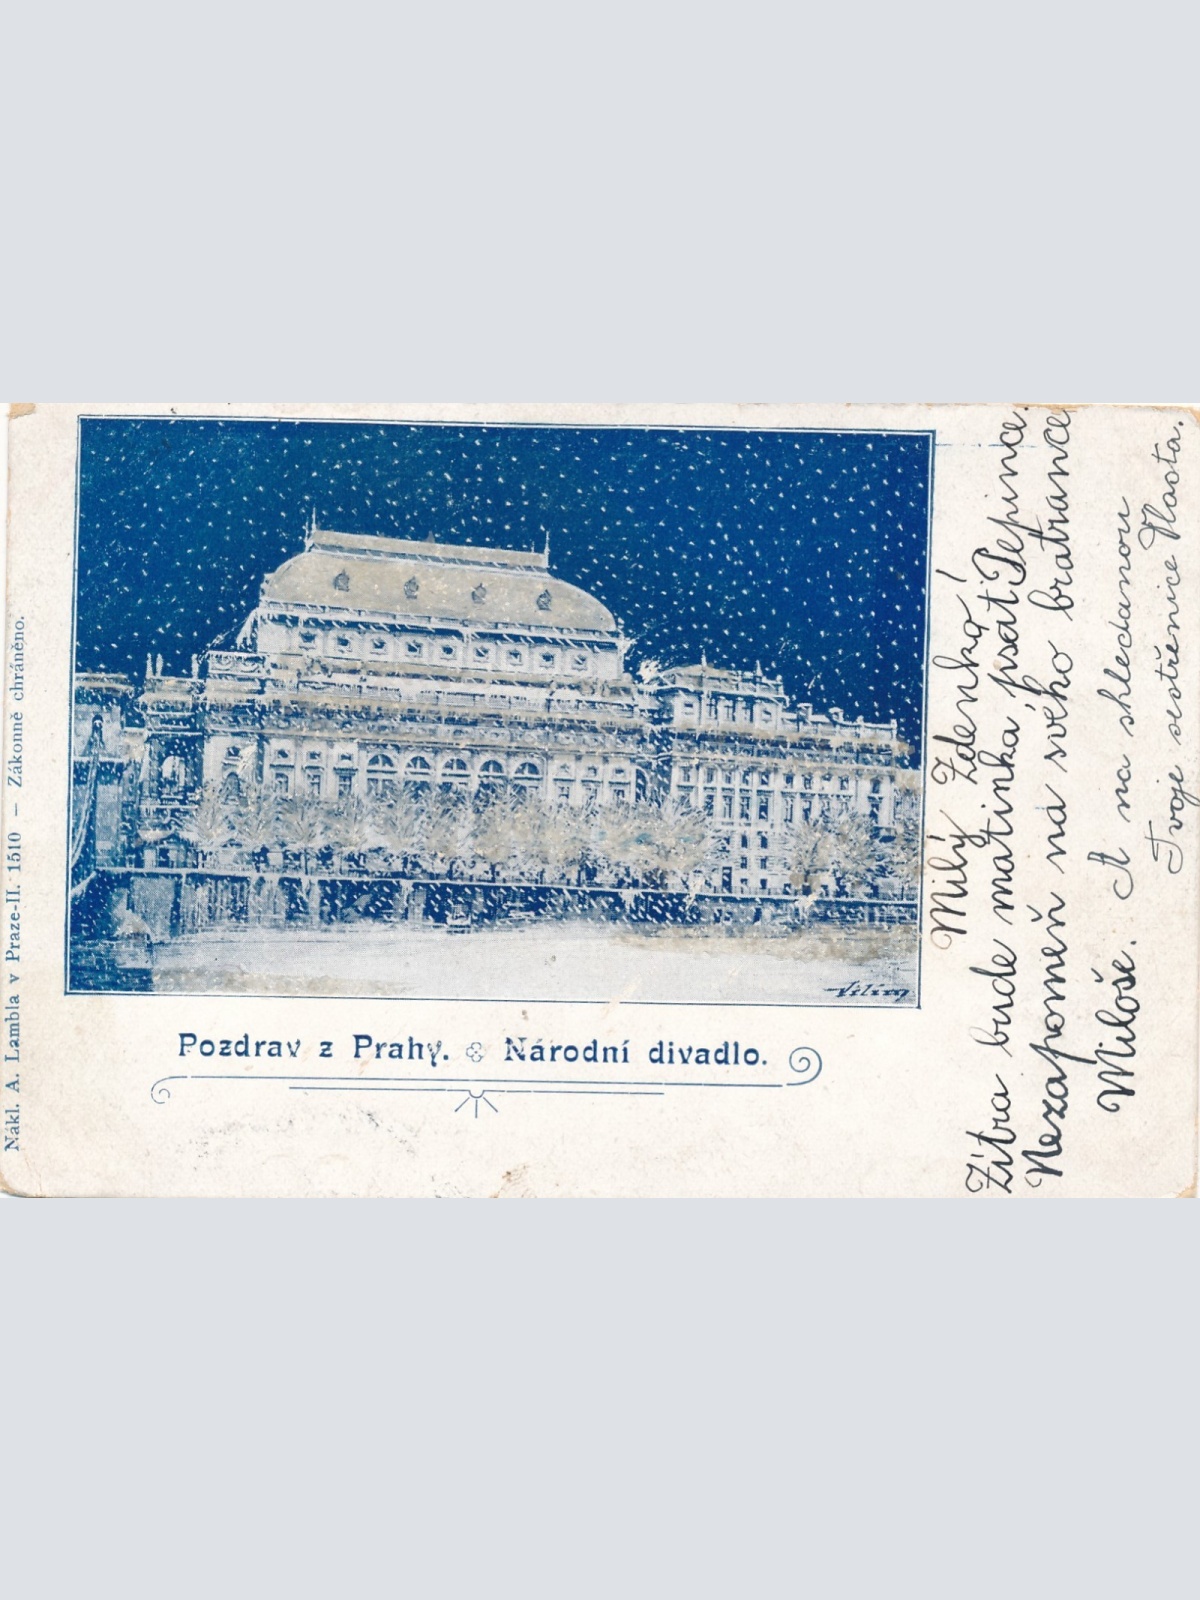 Nákl. A. Lambla v Praze-II. 1510 – Zákonně chráněno.
Vilím
Pozdrav z Prahy. Národní divadlo.
Milý Zdenkó!
Zítra bude matinka psat Pepince.
Nezapomeň na svého bratrance
Miloše. A na shledanou
Tvoje sestřenice Vlasta.